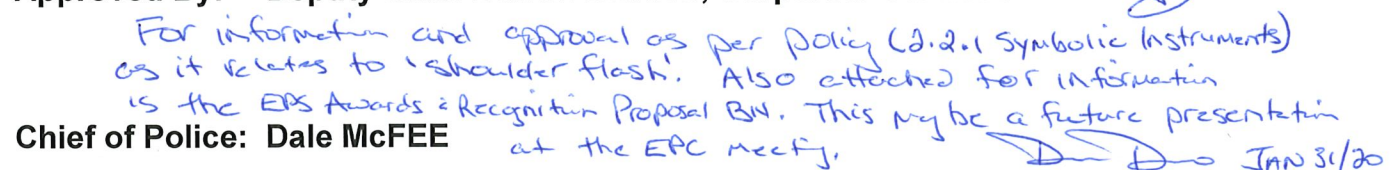 For information and approval as per policy (2.2.1 Symbolic Instruments)
as it relates to 'shoulder flash'. Also attached for information
is the EPS Awards & Recognition Proposal BN. This may be a future presentation
Chief of Police: Dale McFEE at the EPC meeting. JAN 31/20